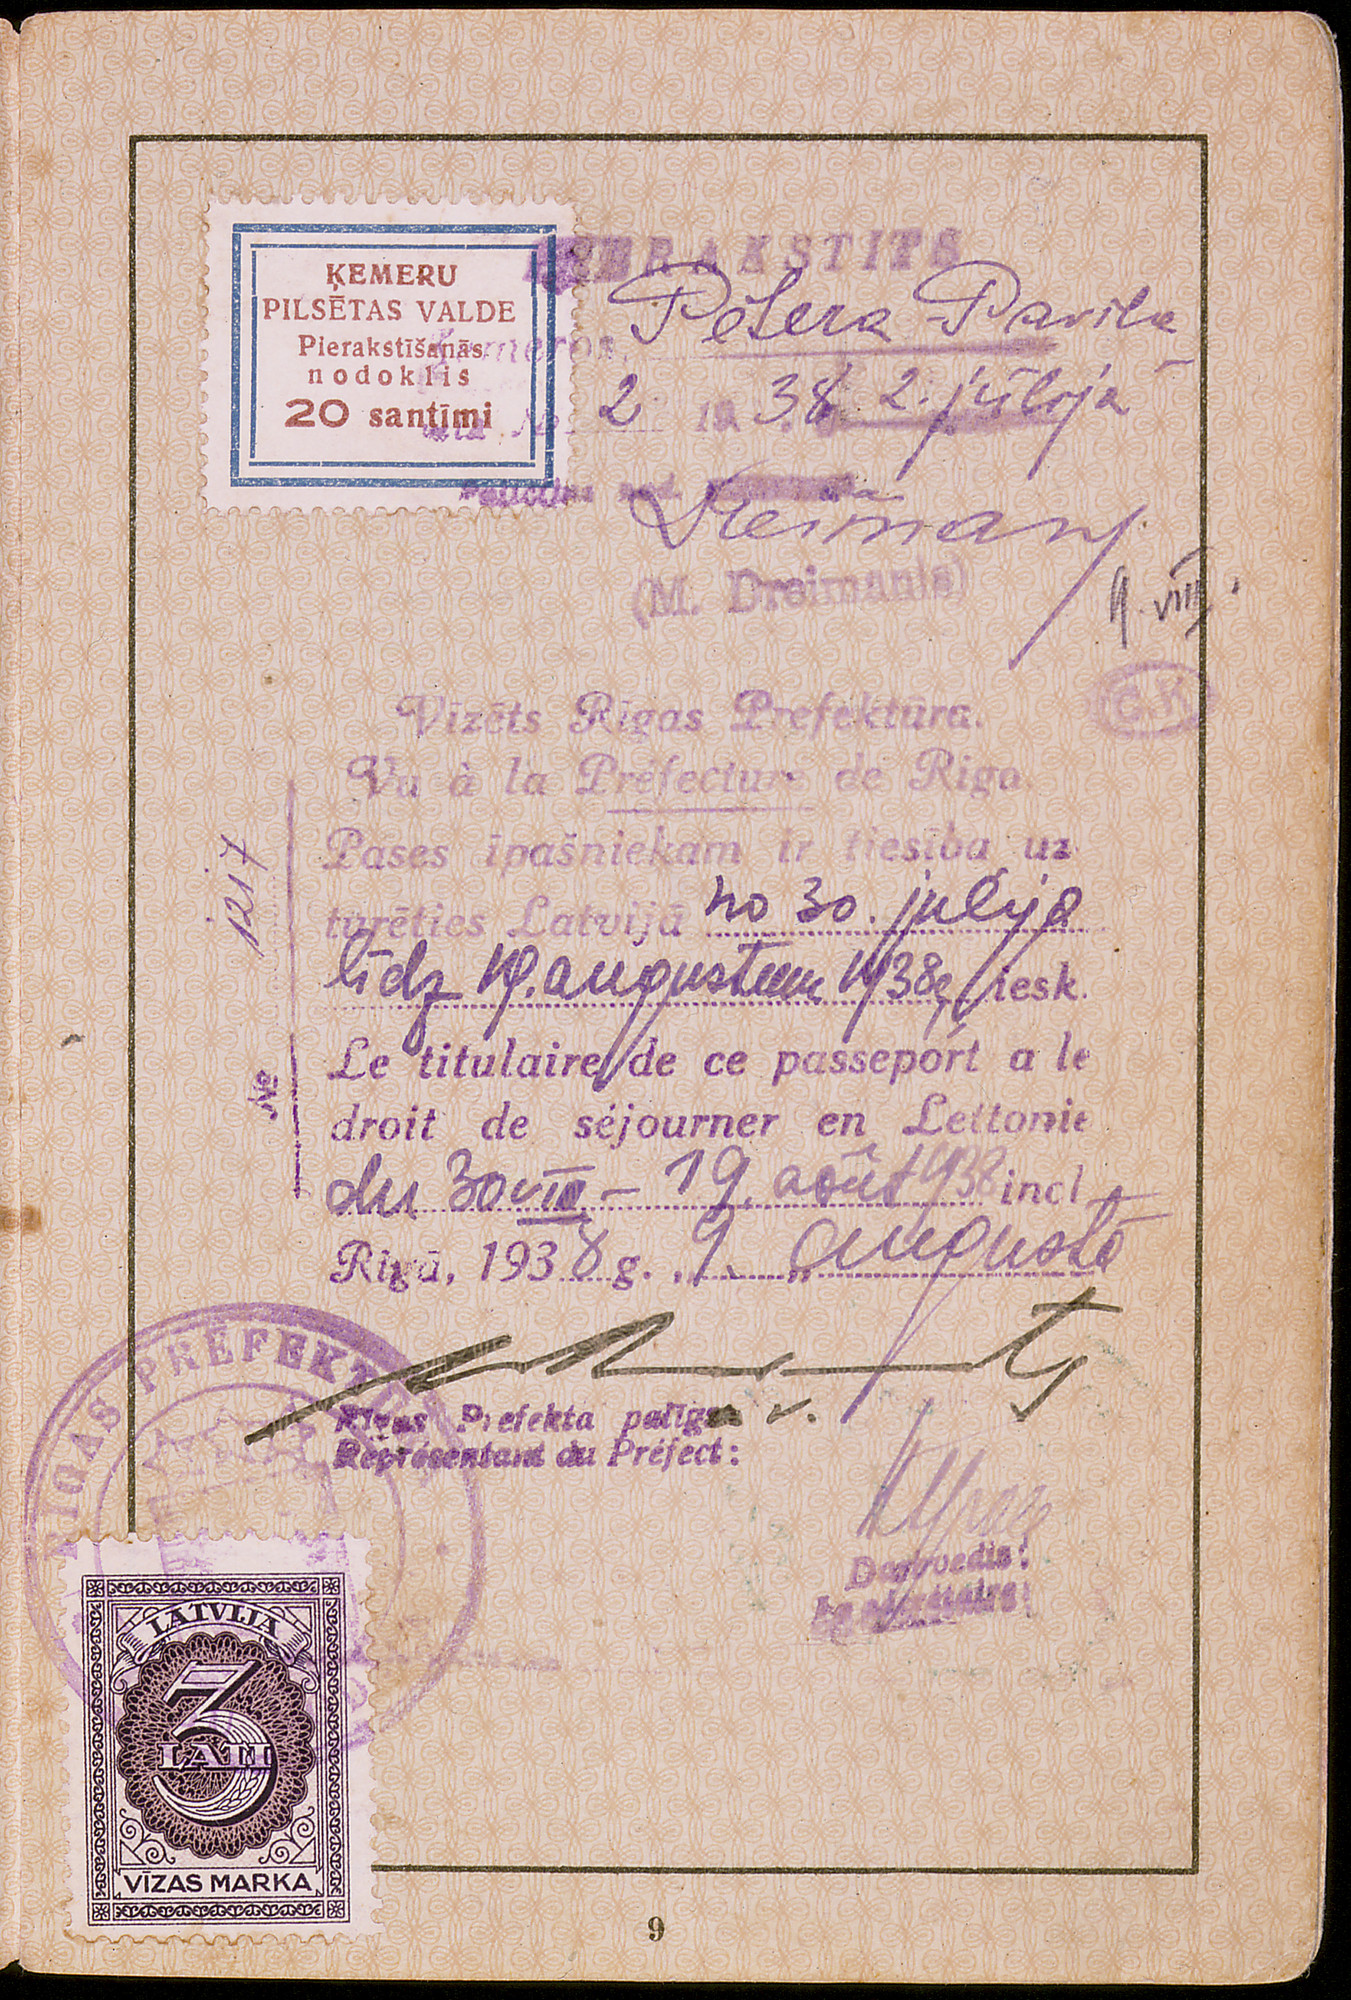 ĶEMERU
PILSĒTAS VALDE
Pierakstīšanās
nodoklis
20 santīmi
PIERAKSTĪTS
Ķemeros, Pētera-Pavila
ielā № 2 19 38. 2. jūlijā
Policijas nod.
(M. Dreimanis)
9. VIII.
Vīzēts Rīgas Prefektūrā.
Vu à la Préfecture de Riga.
Pases īpašniekam ir tiesība uz-
turēties Latvijā no 30. jūlija
līdz 19. augustam 1938g. iesk.
Le titulaire de ce passeport a le
droit de séjourner en Lettonie
du 30 VII – 19. août 1938 incl.
Rīgā, 1938 g. 9. augustā
№ 1217
Rīgas Prefekta palīgs v.
Représentant du Préfect:
Darbvedis:
Le secrétaire:
RĪGAS PREFEKTŪRA
LATVIJA
3
LATI
VĪZAS MARKA
9